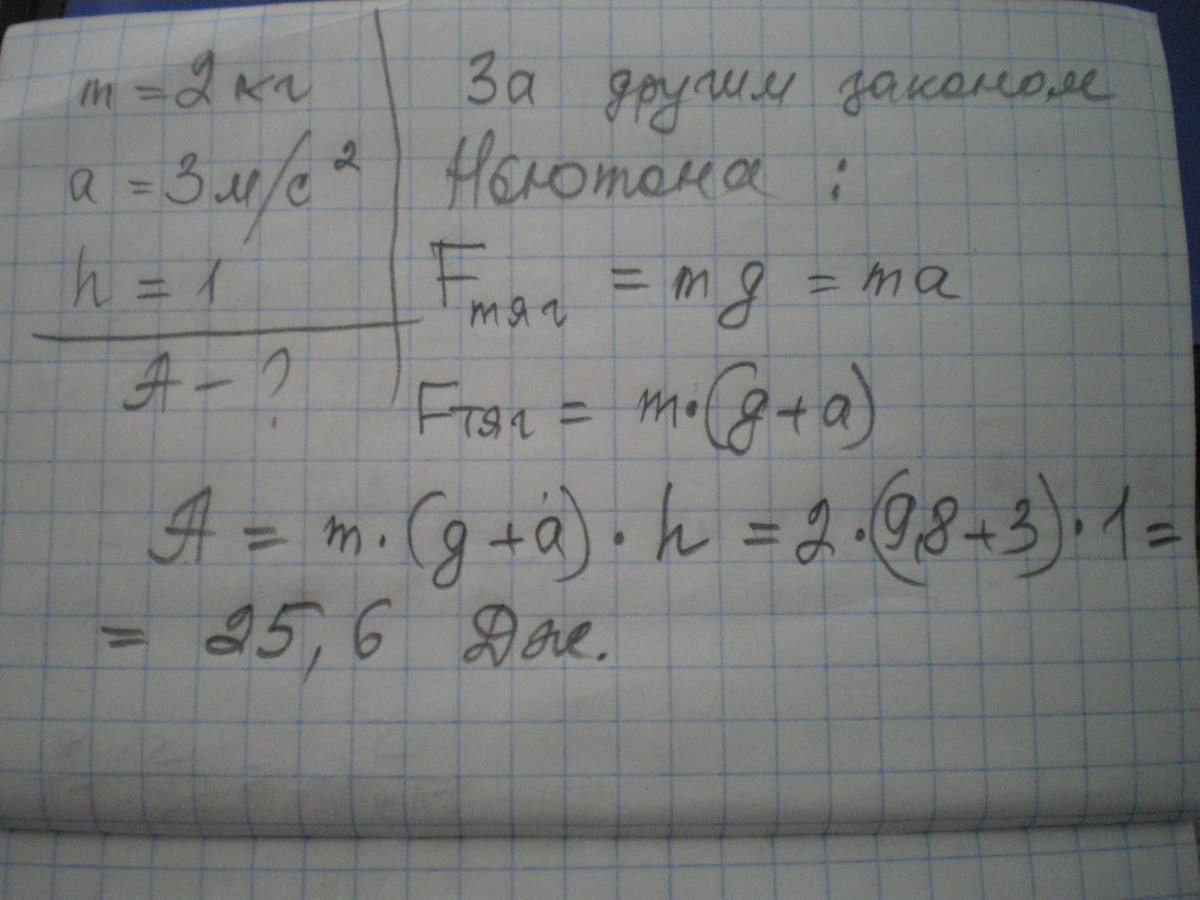 m = 2 кг
a = 3 м/с²
h = 1
A - ?
За другим законом
Ньютона :
Fтяг = mg = ma
Fтяг = m·(g+a)
A = m·(g+a)·h = 2·(9,8+3)·1 =
= 25,6 Дж.